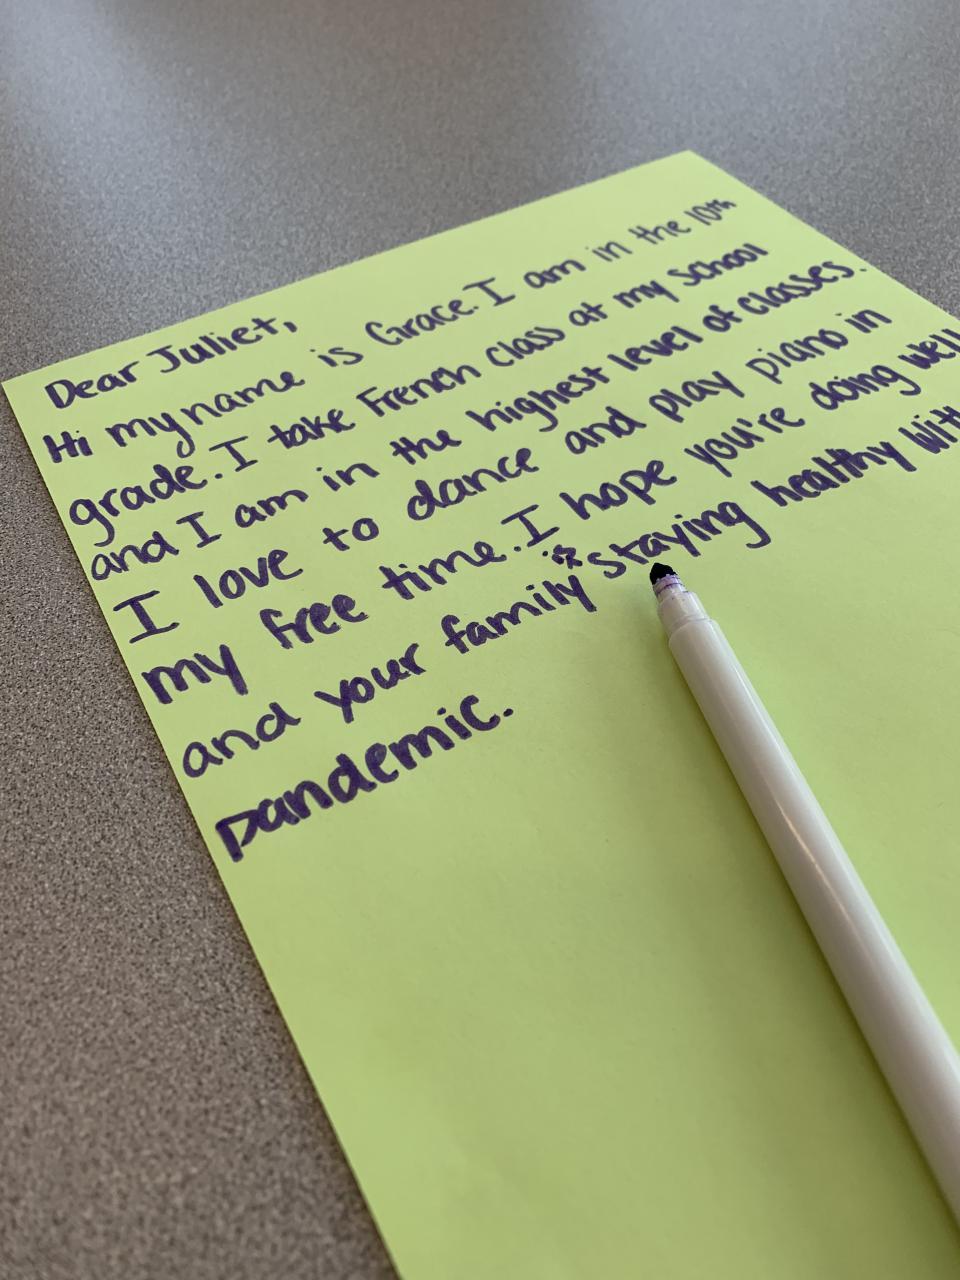 Dear Juliet,
Hi my name is Grace. I am in the 10th
grade. I take French class at my school
and I am in the highest level of classes.
I love to dance and play piano in
my free time. I hope you're doing well
and your family is staying healthy with
pandemic.